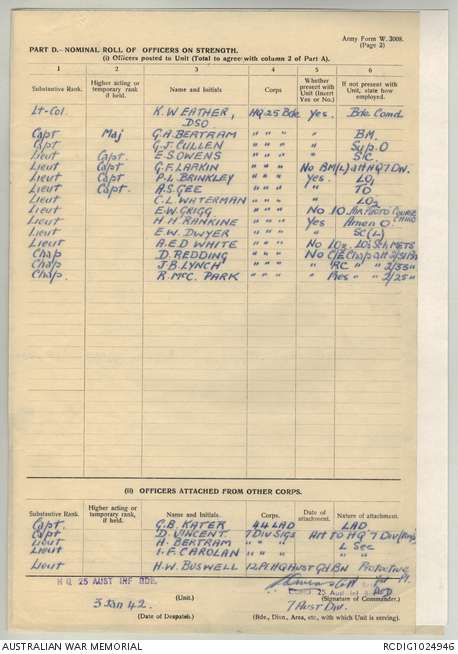 Army Form W. 3008.
(Page 2)
PART D.—NOMINAL ROLL OF OFFICERS ON STRENGTH.
(i) Officers posted to Unit (Total to agree with column 2 of Part A).
1 2 3 4 5 6
Substantive Rank. Higher acting or temporary rank if held. Name and Initials. Corps Whether present with Unit (Insert Yes or No.) If not present with Unit, state how employed.
Lt-Col. K. W EATHER, DSO HQ 25 Bde Yes. Bde Comd.
Capt Maj G.A. BERTRAM " " " " BM.
Capt G.J. CULLEN " " " " Sup. O
Lieut Capt. E.S. OWENS " " " " S/C.
Lieut Capt G.F. LARKIN " " " No BM(L) att HQ 7 Div.
Lieut Capt P.L. BRINKLEY " " " Yes. LO1
Lieut Capt. A.S. GEE " " " " TO
Lieut C.L. WATERMAN " " " " LO2
Lieut E.W. GRIGG " " " No 10. Air Photo Course
Lieut H.H. RANKINE " " " Yes Amen O.
Lieut E.W. DWYER " " " " SC(L)
Lieut A.E.D WHITE " " " No LOs Sch METS
Chap D. REDDING " " " No C/E Chap att 2/31 Bn
Chap J.B. LYNCH " " " " RC " " 2/33 "
Chap. R. McC. PARK " " " " Pres " " 2/25 "
(ii) OFFICERS ATTACHED FROM OTHER CORPS.
Substantive Rank. Higher acting or temporary rank, if held. Name and Initials. Corps. Date of attachment. Nature of attachment.
Capt. G.B. KATER 44 LAD LAD
Capt. D. VINCENT 7 DIV SIGS Att to HQ 7 Div
Lieut A. BERTRAM " " " L Sec
Lieut I.F. CAROLAN " " " "
Lieut H.W. BUSWELL 12 Pl HQ Aust Gd Bn Protective Pl.
HQ 25 AUST INF BDE.
(Unit.)
(Signature of Commander.)
3 Jan 42.
7 Aust Div.
(Date of Despatch). (Bde., Divn., Area, etc., with which Unit is serving).
AUSTRALIAN WAR MEMORIAL RCDIG1024946